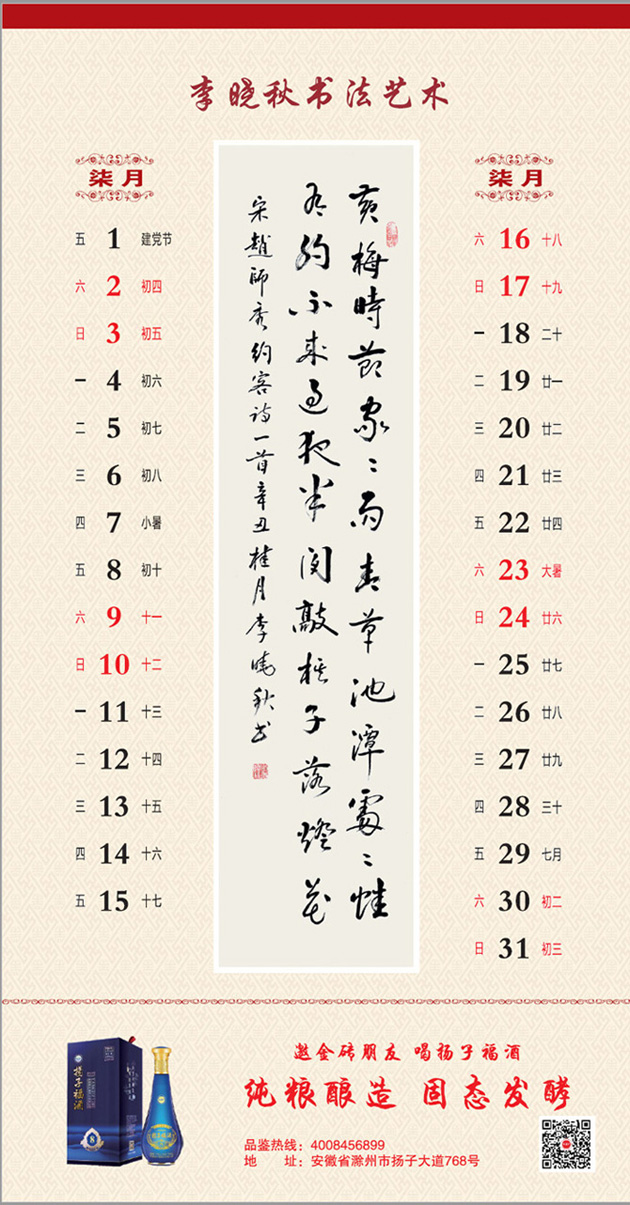 李晓秋书法艺术
柒月
五 1 建党节
六 2 初四
日 3 初五
一 4 初六
二 5 初七
三 6 初八
四 7 小暑
五 8 初十
六 9 十一
日 10 十二
一 11 十三
二 12 十四
三 13 十五
四 14 十六
五 15 十七
黄梅時節家〻雨青草池潭處〻蛙
有約不來過夜半閑敲棋子落燈花
宋趙師秀約客詩一首辛丑桂月李曉秋书
柒月
六 16 十八
日 17 十九
一 18 二十
二 19 廿一
三 20 廿二
四 21 廿三
五 22 廿四
六 23 大暑
日 24 廿六
一 25 廿七
二 26 廿八
三 27 廿九
四 28 三十
五 29 七月
六 30 初二
日 31 初三
扬子福酒
8
邀金砖朋友 喝扬子福酒
纯粮酿造 固态发酵
品鉴热线：4008456899
地 址：安徽省滁州市扬子大道768号